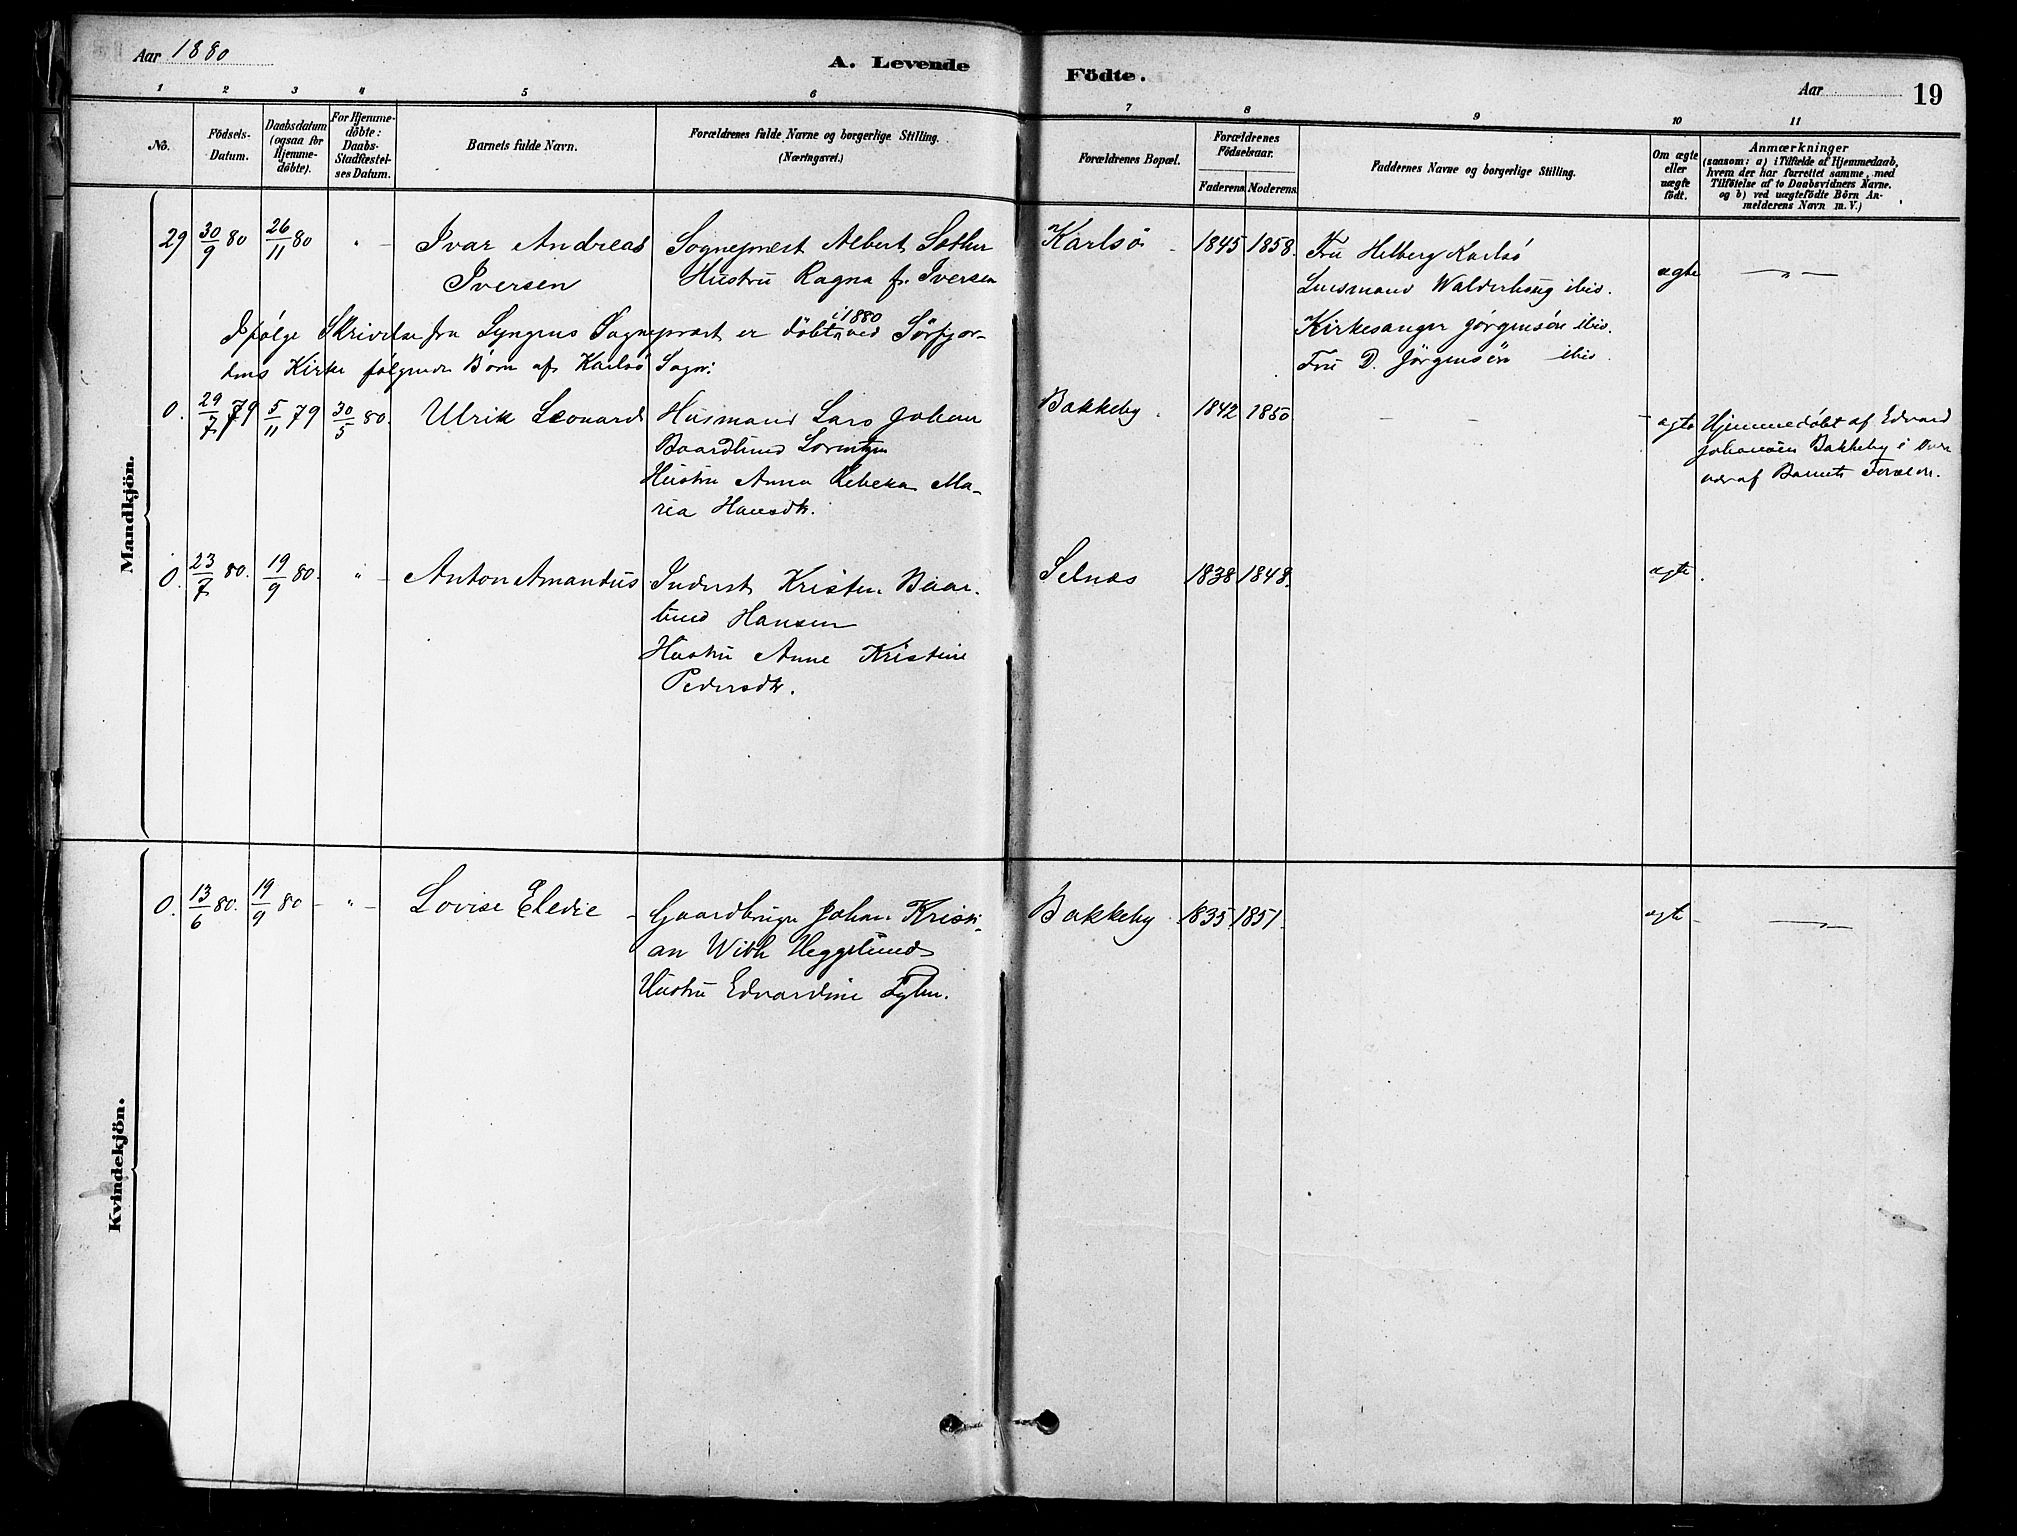 Aar 1880
A. Levende Födte.
Aar
19
1 2 3 4 5 6 7 8 9 10 11
No.
Födsels-
Datum.
Daabsdatum
(ogsaa for
Hjemme-
döbte).
For Hjemme-
döbte:
Daabs-
Stadfæstel-
ses Datum.
Barnets fulde Navn.
Forældrenes fulde Navne og borgerlige Stilling.
(Næringsvei.)
Forældrenes Bopæl.
Forældrenes
Födselsaar.
Faderens. Moderens.
Faddernes Navne og borgerlige Stilling.
Om ægte
eller
uægte
födt.
Anmærkninger
(saasom: a) i Tilfælde af Hjemmedaab,
hvem der har forrettet samme, med
Tilföielse af to Daabsvidners Navne.
og b) ved uægtefödte Börn An-
melderens Navn m. V.)
Mandkjön.
29 30/9 80 26/11 80 " Ivar Andreas
Iversen
Sogneprest Albert Sæther
Hustru Ragna f. Iversen
Karlsö 1845 1858.
Fru Helberg Karlsö
Lensmand Walderhaug ibid.
Kirkesanger Jörgensön ibid.
Fru D. Jörgensön ibid.
ægte — " —
Ifölge Skrivelse fra Lyngens Sogneprest er döbt i 1880 ved Sörfjor-
dens Kirke fölgende Börn af Karlsö Sogn:
0. 29/7 79 5/11 79 30/5 80. Ulrik Leonard
Husmand Lars Johan
Baardlund Lorentzen
Hustru Anna Rebekka Ma-
ria Hansdtr.
Bakkeby. 1842 1850 - - - ægte
Hjemmedöbt af Edvard
Johansen Bakkeby i
af Barnets Forældre.
0. 23/7 80. 19/9 80. " - Anton Amandus
Inderst Kristen Baar-
lund Hansen
Hustru Anne Kristine
Pedersdtr.
Selnæs 1838 1848. ægte
Kvindekjön.
0. 13/6 80. 19/9 80 - " - Lovise Eledie -
Gaardbruger Johan Kristi-
an With Heggelund
Hustru Edvardine
Bakkeby 1835 1851. ægte — " —